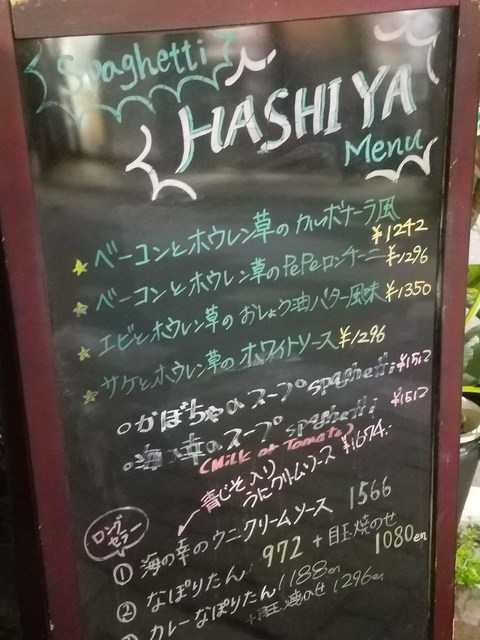 Spaghetti
HASHIYA
Menu
★ベーコンとホウレン草のカルボナーラ風
¥1242
★ベーコンとホウレン草のPePeロンチーニ ¥1296
★エビとホウレン草のおしょう油バター風味 ¥1350
★サケとホウレン草のホワイトソース ¥1296
○かぼちゃのスープspaghetti ¥1512
○海の幸のスープspaghetti ¥1512
(Milk or Tomato)
青じそ入り
うにクリームソース ¥1674.
ロングセラー
① 海の幸のウニクリームソース 1566
② なぽりたん 972 +目玉焼のせ 1080en
カレーなぽりたん 1188en
+目玉焼のせ 1296en